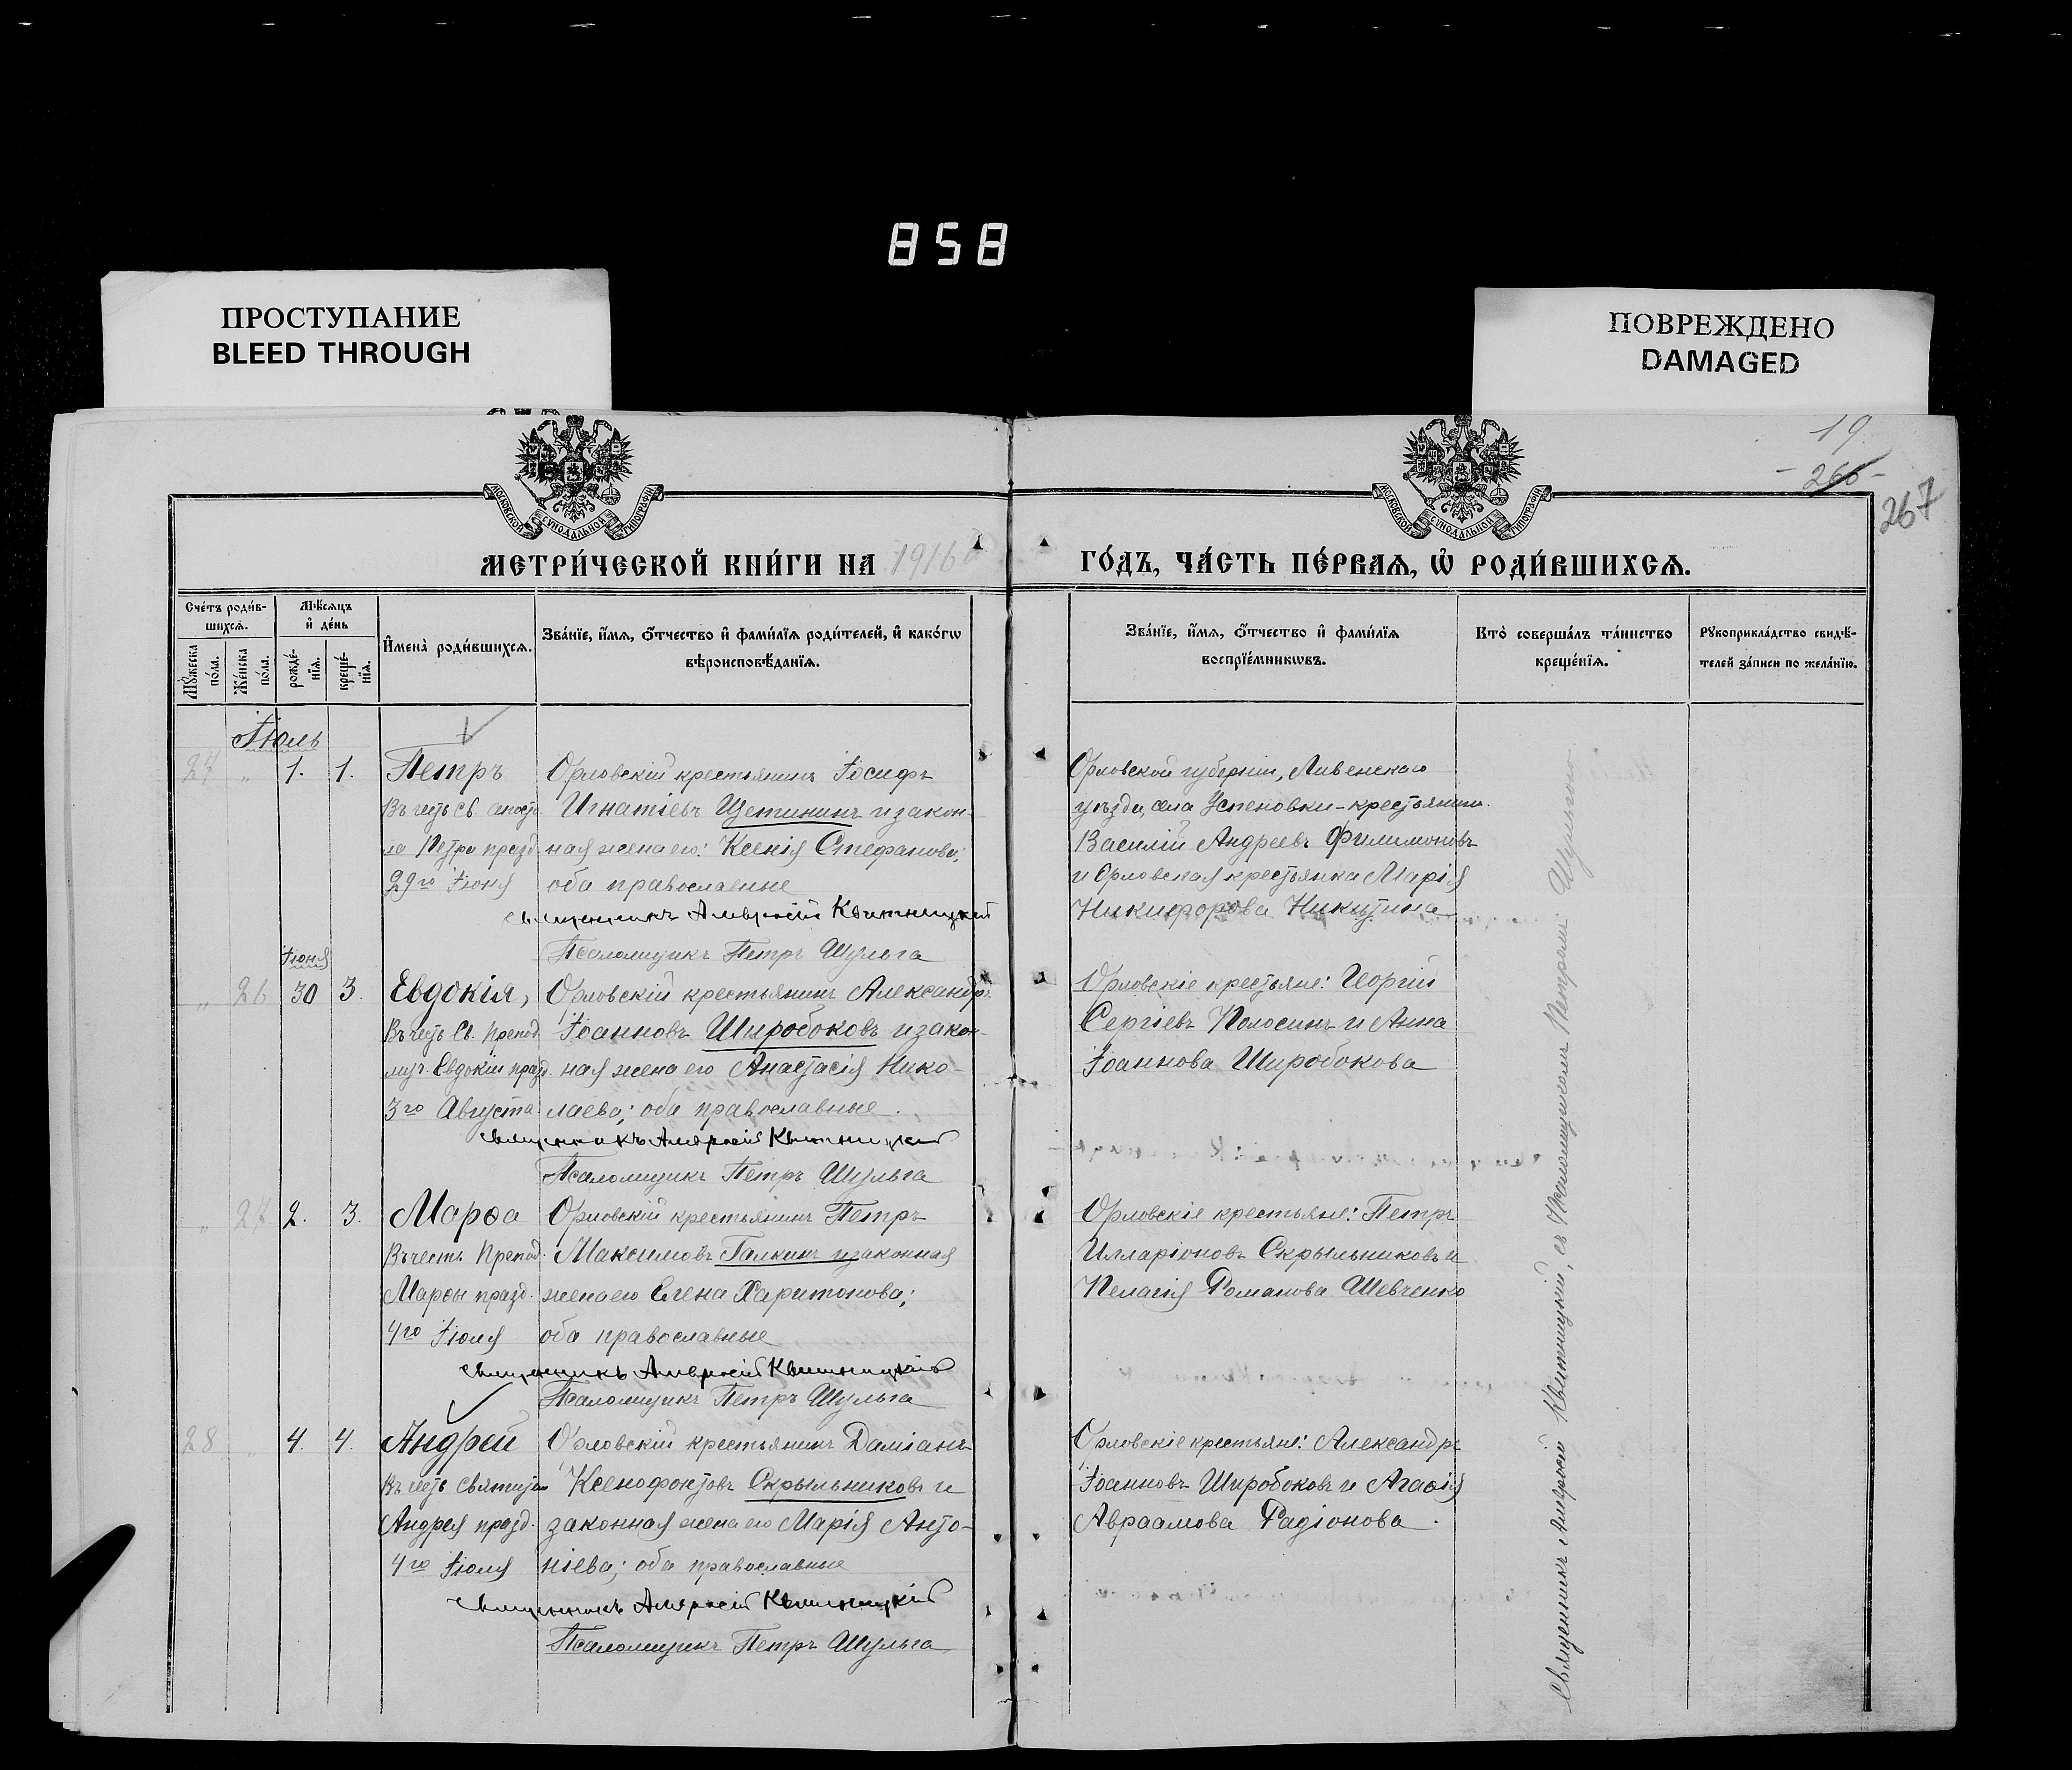 858
ПРОСТУПАНИЕ
BLEED THROUGH
ПОВРЕЖДЕНО
DAMAGED
19.
- 266 -
267
МОСКОВСКОЙ СУНОДАЛЬНОЙ ТИПОГРАФИИ
МОСКОВСКОЙ СУНОДАЛЬНОЙ ТИПОГРАФИИ
МЕТРИ́ЧЕСКОЙ КНИ́ГИ НА 1916й
ГО́ДЪ, ЧА́СТЬ ПЕ́РВАѦ, Ѽ РОДИ́ВШИХСѦ.
Сче́тъ роди́вшихсѧ.
Мѣ́сѧцъ и҆ де́нь
Мꙋ́жеска по́ла.
Же́нска по́ла.
рожде́нїѧ.
креще́нїѧ.
И҆мена̀ роди́вшихсѧ.
Зва́нїе, и҆́мѧ, ѻ҆́тчество и҆ фами́лїѧ роди́телей, и҆ како́гѡ
вѣроисповѣ́данїѧ.
Зва́нїе, и҆́мѧ, ѻ҆́тчество и҆ фами́лїѧ
воспрїе́мникѡвъ.
Кто̀ соверша́лъ та́инство
креще́нїѧ.
Рꙋкоприкла́дство свидѣ́-
телей за́писи по жела́нїю.
Іюль
27 „ 1. 1. Петръ
Въ честь Св. апосто
ла Петра празд.
29го Іюня
Орловскій крестьянинъ Іосифъ
Игнатіевъ Щетининъ и закон-
ная жена его: Ксенія Стефанова;
оба православные
Священникъ Амвросій Квитницкій
Псаломщикъ Петръ Шульга
Орловской губерніи, Ливенского
уѣзда, села Успеновки - крестьянин.
Василій Андреевъ Филимоновъ
и Орловская крестьянка Марія
Никифорова Никитина
Іюня
„ 26 30 3. Евдокія,
Въ честь Св. Препод.
муч. Евдокіи празд.
3го Августа
Орловскій крестьянинъ Александръ
Іоанновъ Широбоковъ и закон-
ная жена его Анастасія Нико-
лаева; оба православные.
Священникъ Амвросій Квитницкій
Псаломщикъ Петръ Шульга
Орловскіе крестьяне: Георгій
Сергіевъ Полосинъ и Анна
Іоаннова Широбокова
„ 27 2. 3. Марѳа
Въ честь Препод.
Марѳы празд.
4го Іюля
Орловскій крестьянинъ Петръ
Максимовъ Галкинъ и законная
жена его Елена Харитонова;
оба православные
Священникъ Амвросій Квитницкій
Псаломщикъ Петръ Шульга
Орловскіе крестьяне: Петръ
Илларіоновъ Скрыльниковъ и
Пелагія Романова Шевченко
28 „ 4. 4. Андрей
Въ честь Святителя
Андрея празд.
4го Іюля
Орловскій крестьянинъ Даміанъ
Ксенофонтовъ Скрыльниковъ и
законная жена его Марія Анто-
ніева; оба православные
Священникъ Амвросій Квитницкій
Псаломщикъ Петръ Шульга
Орловскіе крестьяне: Александръ
Іоанновъ Широбоковъ и Агаѳія
Авраамова Радіонова.
Священникъ Амвросій Квитницкій, съ Псаломщикомъ Петромъ Шульгою